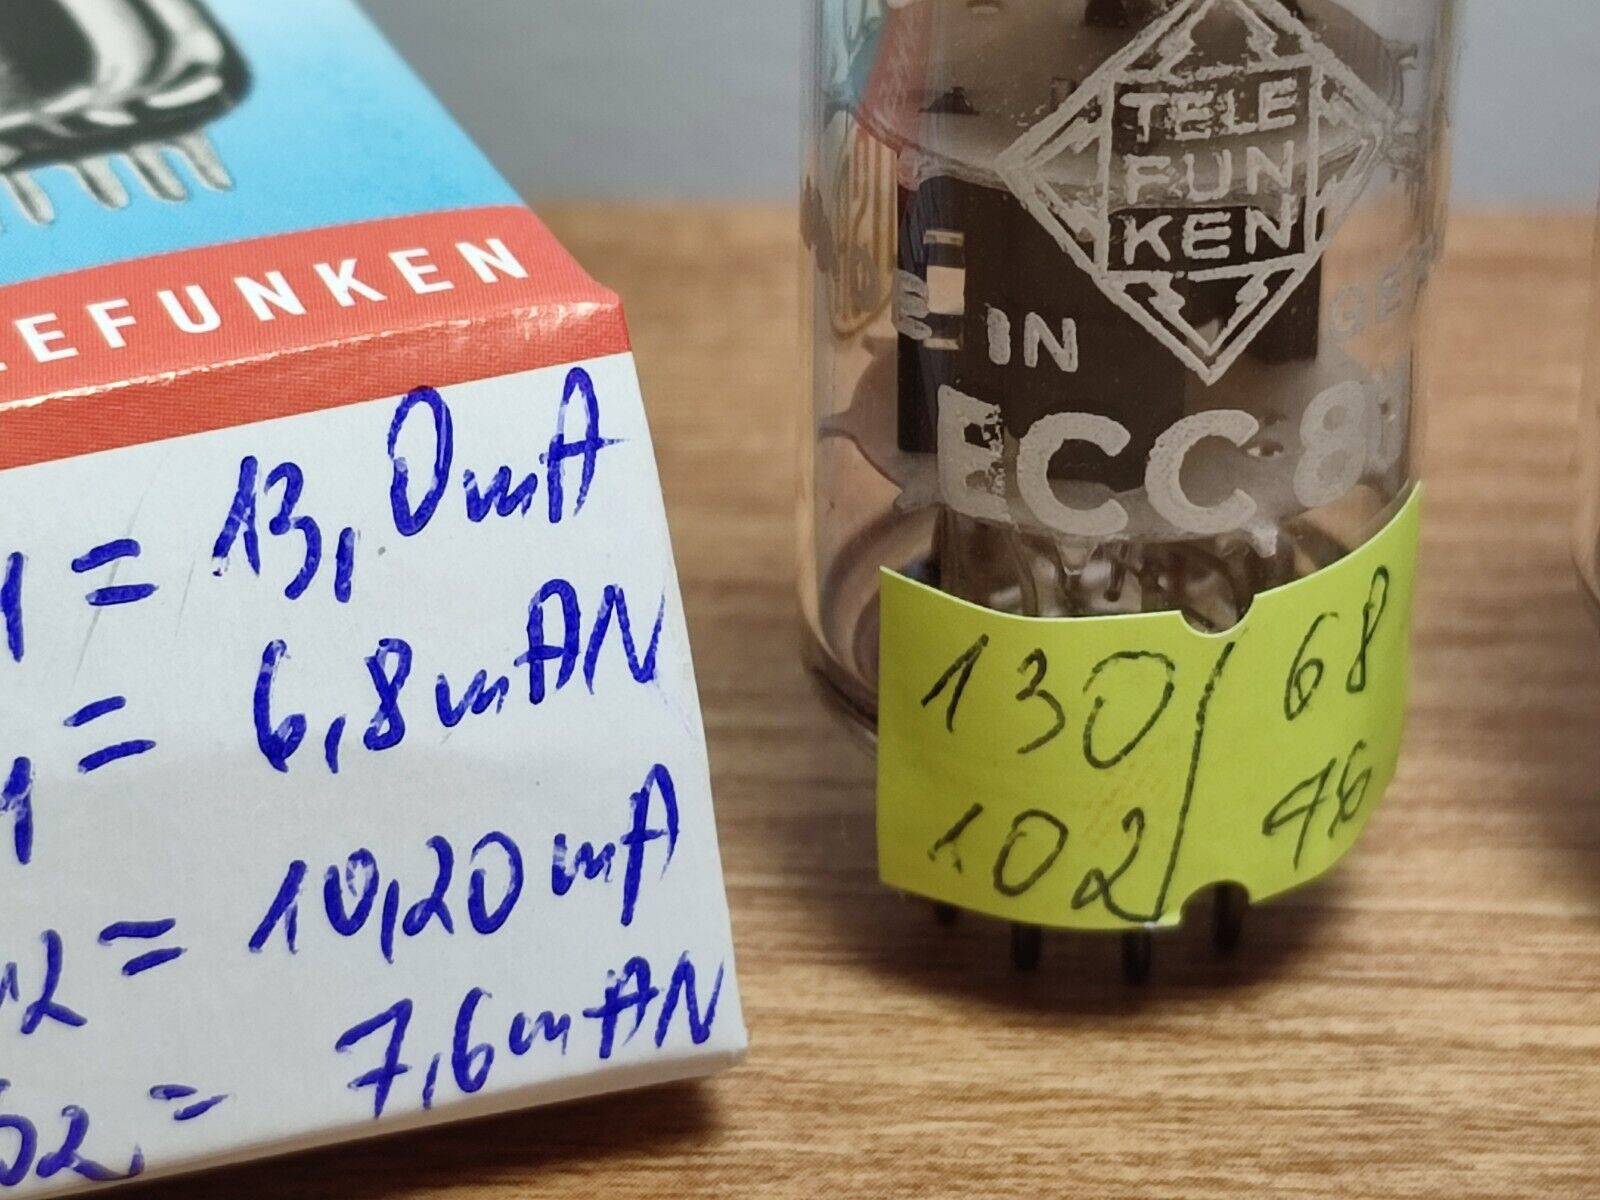 EFUNKEN
1 = 13,0mA
1 = 6,8mAN
2 = 10,20mA
2 = 7,6mAN
TELE
FUN
KEN
IN
ECC 81
130/68
102/76